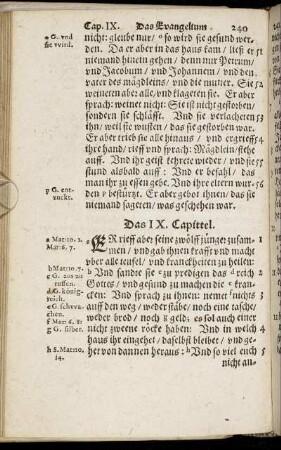 Cap. IX. Das Evangelium 240
nicht: gleube nur/ ᵒ so wird sie gesund wer-
den. Da er aber in das haus kam/ ließ er 51
niemand hinein gehen/ denn nur Petrum/
vnd Jacobum/ vnd Johannem/ vnd den
vater des mägdleins/ vnd die mutter. Sie 52
weineten abe: alle/ vnd klageten sie. Er aber
sprach: weinet nicht: Sie ist nicht gestorben/
sondern sie schläfft. Vnd sie verlacheten 53
ihn/ weil sie wusten/ das sie gestorben war.
Er aber trieb sie alle hinaus/ vnd ergrieff 54
ihre hand/ rieff vnd sprach: Mägdlein/ stehe
auff. Vnd ihr geist kehrete wieder/ vnd sie 55
stund alsbald auff: Vnd er befahl/ das
man ihr zu essen gebe. Vnd ihre eltern wur- 56
den ᵖ bestürtzt. Er aber gebot ihnen/ das sie
niemand sageten/ was geschehen war.
o G. vnd
sie wird.
p G. ent-
zuckt.
Das IX. Capittel.
ER rieff aber seine zwölff jünger zusam- 1
men/ vnd gab ihnen krafft vnd macht
vber alle teufel/ vnd kranckheiten zu heilen:
ᵇ Vnd sandte sie ᶜ zu predigen das ᵈ reich 2
Gottes/ vnd gesund zu machen die kran-
cken: Vnd sprach zu ihnen: nemet ᶠ nichts 3
auff den weg/ weder stäbe/ noch eine tasche/
weder brod/ noch ᵍ geld; es sol auch einer
nicht zweene röcke haben: Vnd in welch 4
haus ihr eingehet/ daselbst bleibet/ vnd ge-
het von dannen heraus: ʰ Vnd so viel euch 5
nicht an-
a Matt. 10. 1.
Mar. 6. 7.
b Matt. 10. 7.
d G. königreich.
f Mar. 6. 8:
g G. silber.
h S. Matt. 10.
14.